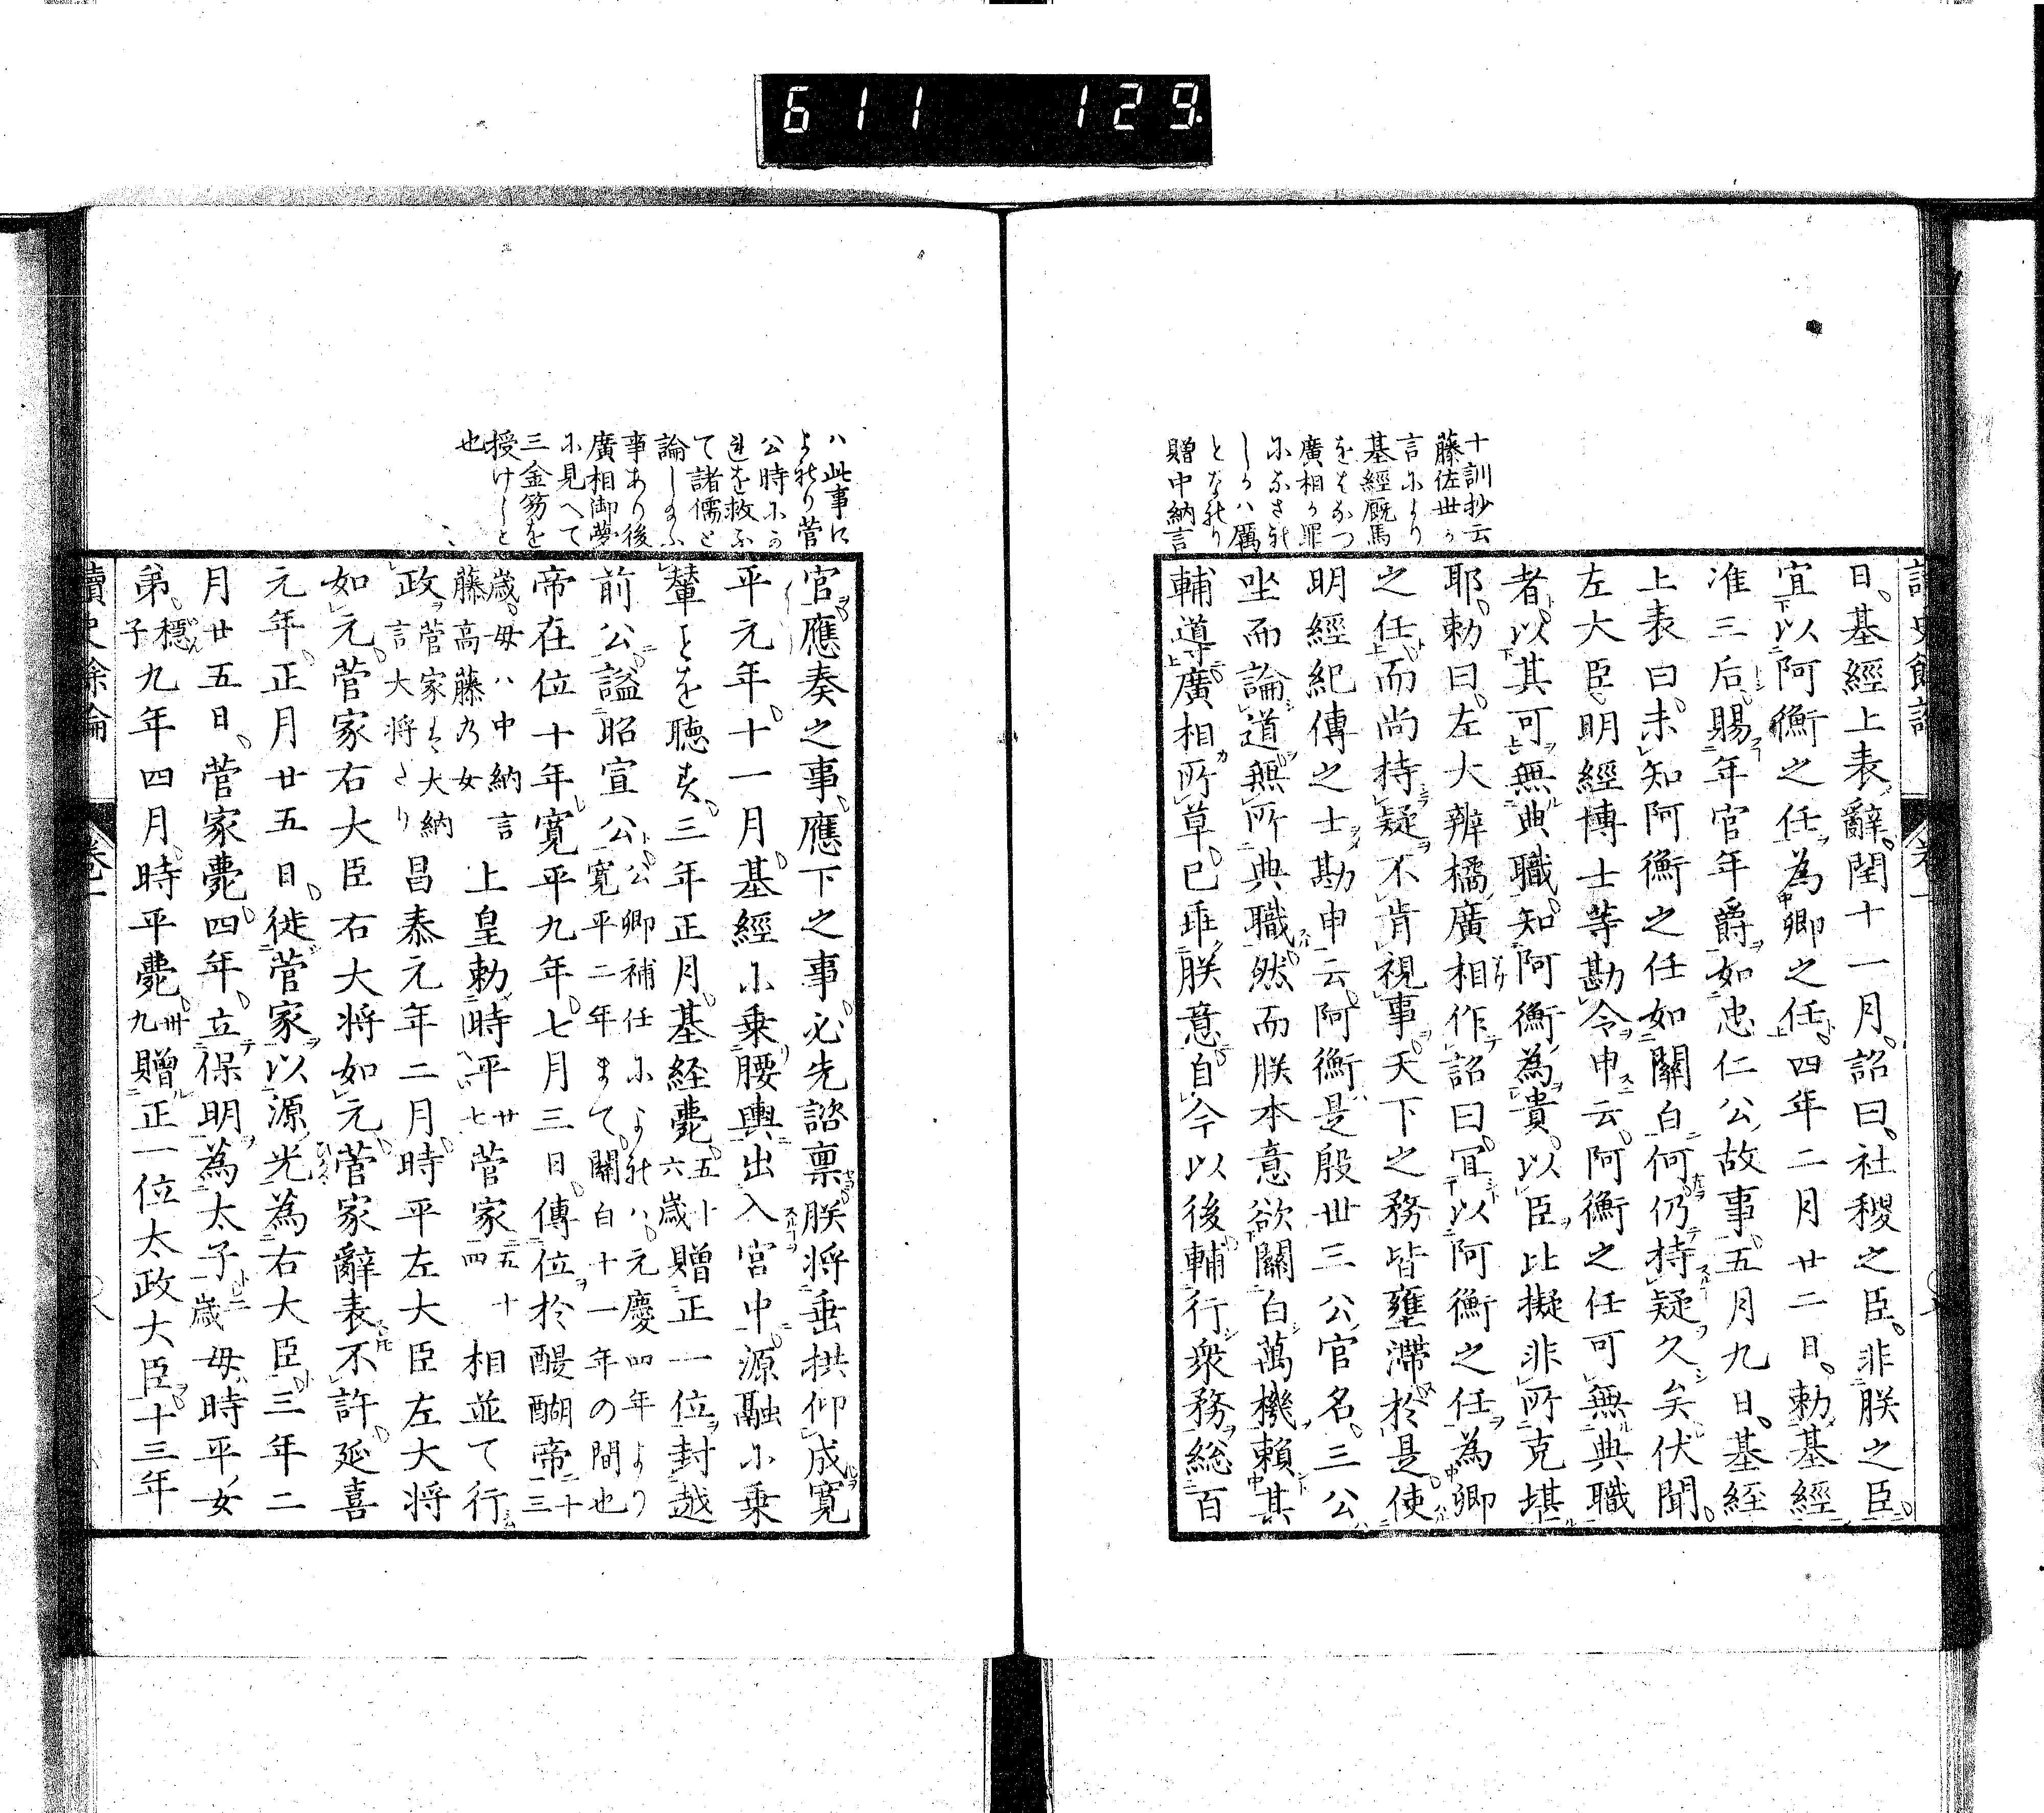 611 129
十訓抄云
藤佐世か
言によりて
基經厩馬
をはなつ
廣相か罪
になされ
しかハ厲
となれり
贈中納言
日基經上表辭閏十一月詔曰社稷之臣非朕之臣
宜以阿衡之任為卿之任四年二月廿二日勅基經
准三后賜年官年爵如忠仁公故事五月九日基経
上表曰未知阿衡之任如關白何仍持疑久矣伏聞
左大臣明經博士等勘令申云阿衡之任可無典職
者以其可無典職知阿衡為貴以臣比擬非所克堪
耶勅曰左大辨橘廣相作詔曰宜以阿衡之任為卿
之任而尚持疑不肯視事天下之務皆壅滯於是使
明經紀傳之士勘申云阿衡是殷世三公官名三公
坐而論道無所典職然而朕本意欲關白萬機頼其
輔導廣相所草已乖朕意自今以後輔行衆務総百
ハ此事に
よれり菅
公時にか
れを救ふ
て諸儒と
論しふ
事あり後
廣相御夢
に見へて
三金笏を
授けしと
也
官應奏之事應下之事必先諮禀朕将垂拱仰成寛
平元年十一月基經に乗腰輿出入宮中源融に乗
輦ことを聴す三年正月基経薨五十六歳贈正一位封越
前公謚昭宣公公卿補任によれハ元慶四年より寛平二年まて關白十一年の間也
帝在位十年寛平九年七月三日傳位於醍醐帝十三
歳母ハ中納言藤高藤乃女上皇勅時平廿七菅家五十四相並て行
政菅家は大納言大将たり昌泰元年二月時平左大臣左大将
如元菅家右大臣右大将如元菅家辭表不許延喜
元年正月廿五日徙菅家以源光為右大臣三年二
月廿五日菅家薨四年立保明為太子二歳母時平女
弟穏子九年四月時平薨卅九贈正一位太政大臣十三年
讀史餘論 卷一